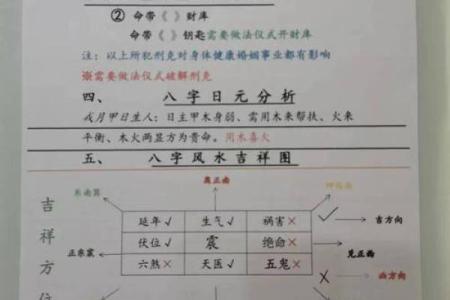 ② 命带《 》财库
命带《 》钥匙需要做法仪式开财库
注：以上所犯刑克对身体健康婚姻事业都有影响
※需要做法仪式破解刑克
四、 八字日元分析
戌月甲日生人：日主甲木身弱、需用木来帮扶、火来
平衡、木火两显方为贵命。用木喜火
五、 八字风水吉祥图
离正南
东南巽
延年✓ 生气✓ 祸害×
吉方向
伏位✓ 震 绝命×
正东震
兑正西
六煞× 天医✓ 五鬼×
凶方向
吉祥方位